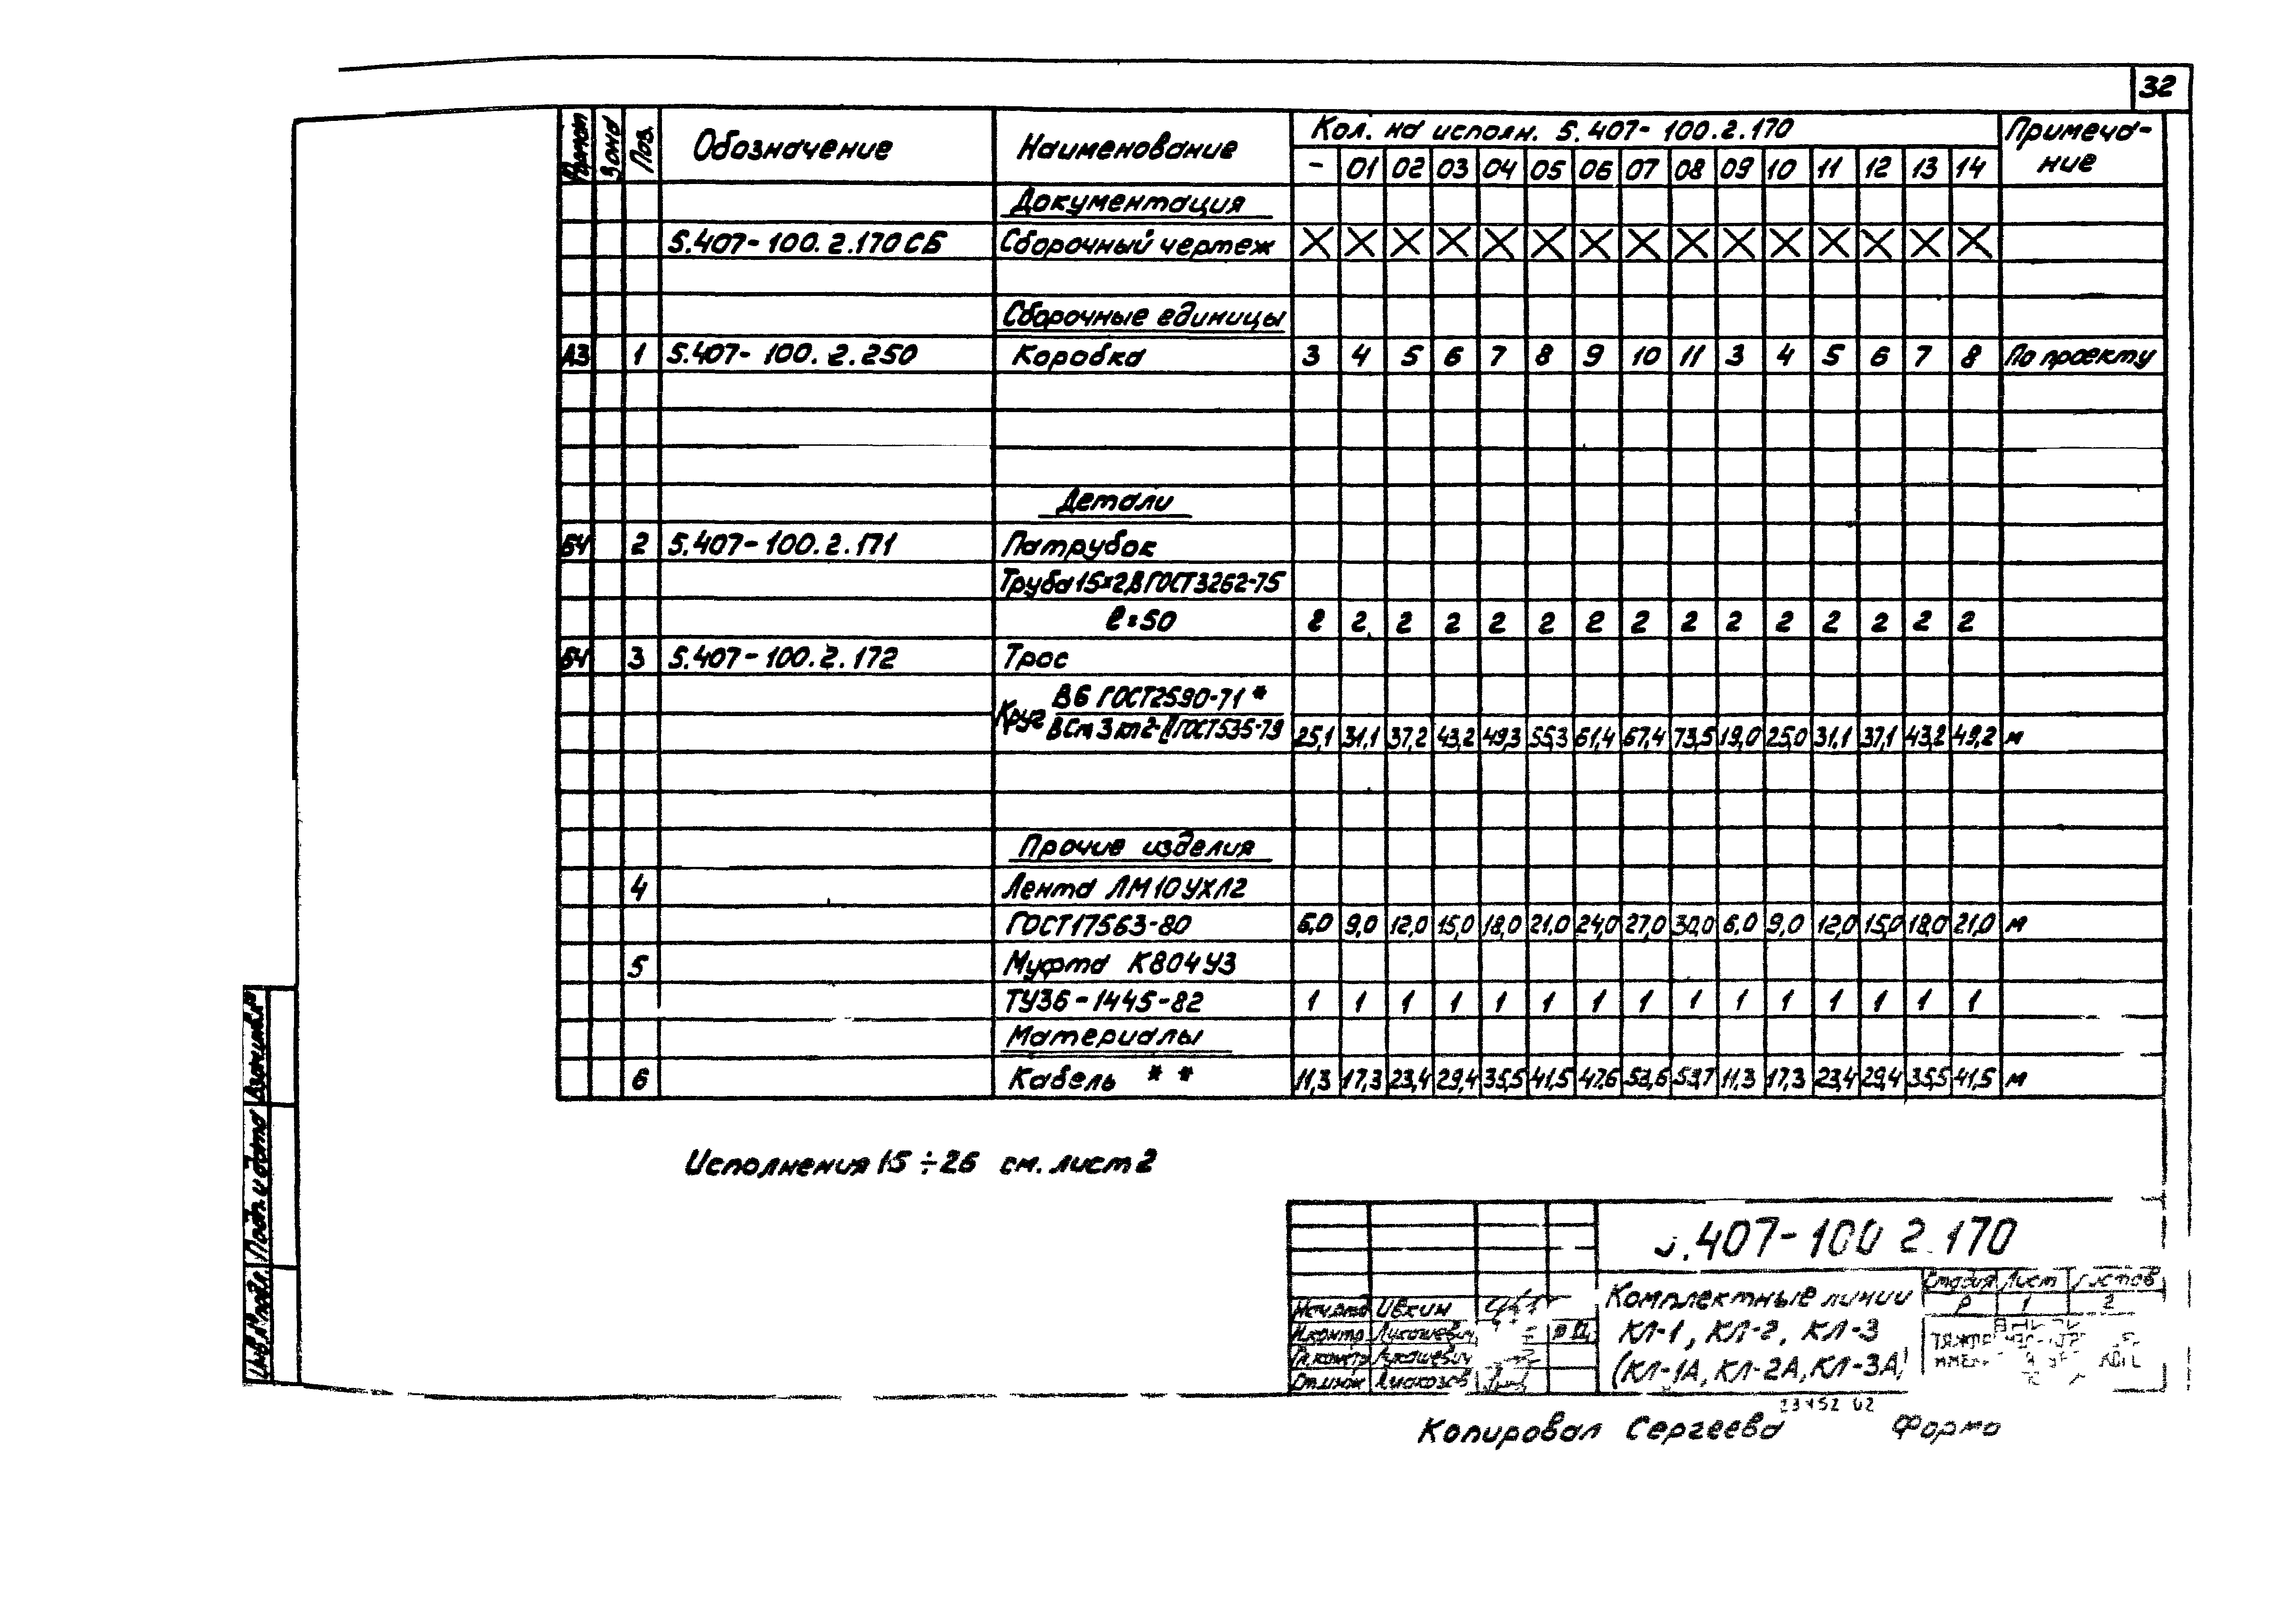 32
Формат Зона Поз. Обозначение Наименование Кол. на исполн. 5.407-100.2.170 Примеча-
ние
- 01 02 03 04 05 06 07 08 09 10 11 12 13 14
Документация
5.407-100.2.170СБ Сборочный чертеж X X X X X X X X X X X X X X X
Сборочные единицы
А3 1 5.407-100.2.250 Коробка 3 4 5 6 7 8 9 10 11 3 4 5 6 7 8 По проекту
Детали
БЧ 2 5.407-100.2.171 Патрубок
Труба 15×2,8 ГОСТ3262-75
ℓ=50 2 2 2 2 2 2 2 2 2 2 2 2 2 2 2
БЧ 3 5.407-100.2.172 Трос
Круг В6 ГОСТ2590-71*
ВСт3кп2-II ГОСТ535-79 25,1 31,1 37,2 43,2 49,3 55,3 61,4 67,4 73,5 19,0 25,0 31,1 37,1 43,2 49,2 м
Прочие изделия
4 Лента ЛМ10УХЛ2
ГОСТ17563-80 6,0 9,0 12,0 15,0 18,0 21,0 24,0 27,0 30,0 6,0 9,0 12,0 15,0 18,0 21,0 м
5 Муфта К804У3
ТУ36-1445-82 1 1 1 1 1 1 1 1 1 1 1 1 1 1 1
Материалы
6 Кабель ** 11,3 17,3 23,4 29,4 35,5 41,5 47,6 53,6 53,7 11,3 17,3 23,4 29,4 35,5 41,5 м
Исполнения 15÷26 см. лист 2
Инв.№подл. Подп. и дата Взам.инв.№
.407-100 2.170
Комплектные линии
КЛ-1, КЛ-2, КЛ-3
(КЛ-1А, КЛ-2А, КЛ-3А)
Стадия Лист Листов
Р 1 2
Нач.отд Ивкин
Н.контр Лукашевич
Гл.констр Лукашевич
Ст.инж
Копировал Сергеева